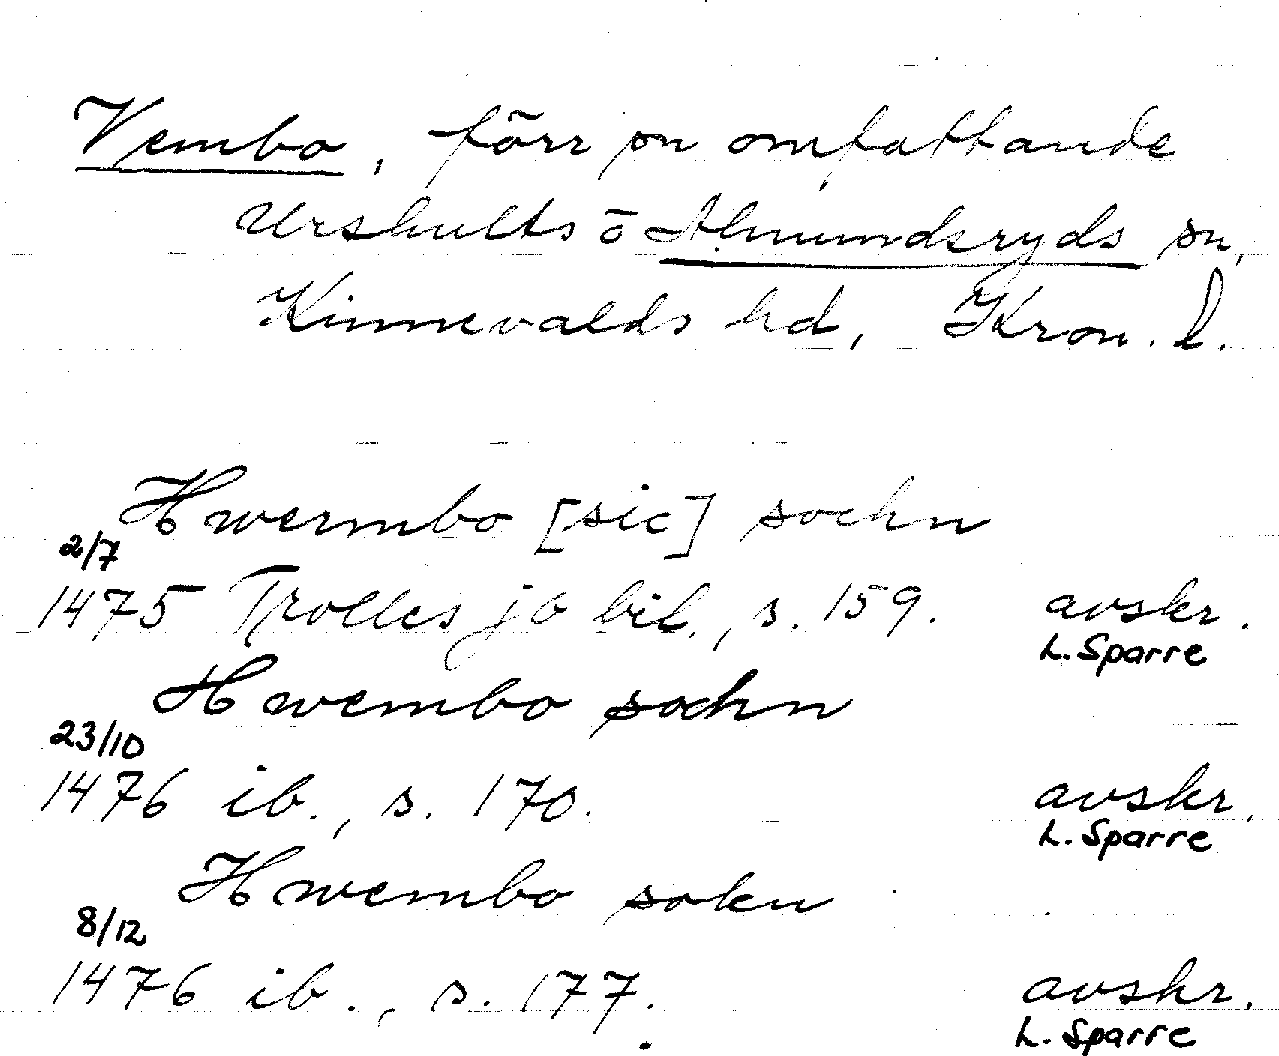 Vembo, förr sn omfattande
Urshults o Almundsryds sn,
Kinnevalds hd, Kron. l.
Hwermbo [sic] sochn
2/7
1475 Trolles jb bil., s. 159. avskr.
L. Sparre
Hwembo sochn
23/10
1476 ib., s. 170. avskr.
L. Sparre
Hwembo sokn
8/12
1476 ib., s. 177. avskr.
L. Sparre